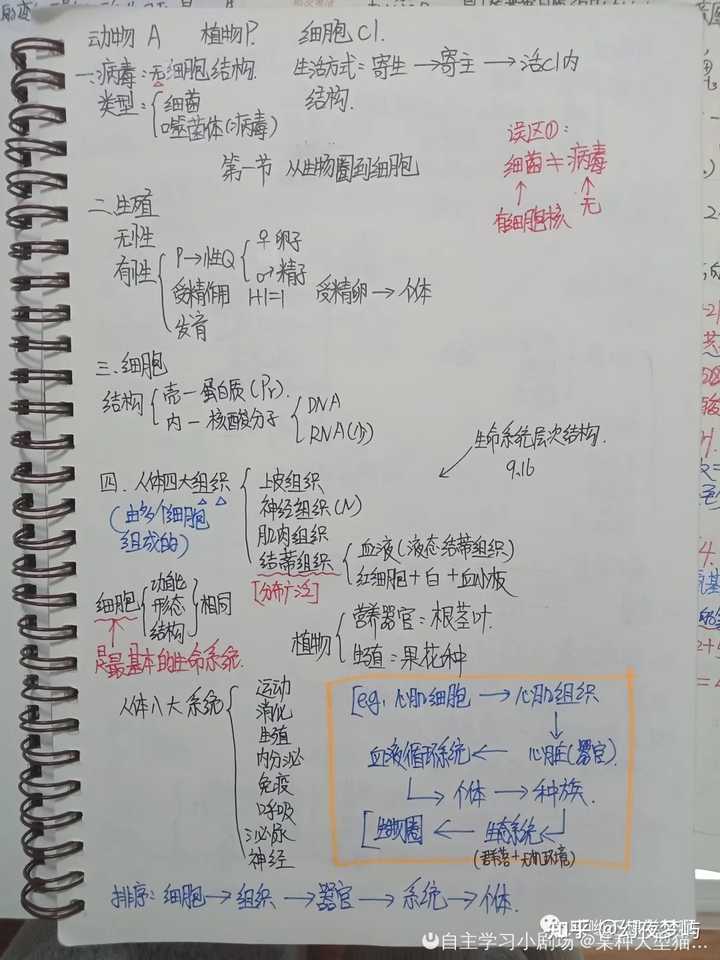 动物 A 植物P. 细胞Cl.
一.病毒:无细胞结构. 生活方式:寄生→寄主→活Cl内
类型:{细菌 结构.
噬菌体(病毒)
误区①:
细菌≠病毒
第一节 从生物圈到细胞
有细胞核 无
二.生殖
无性
有性
P→性Q{♀卵子
♂精子
受精作用 1+1=1 受精卵→个体
发育
三.细胞
结构{壳—蛋白质(Pr).
内—核酸分子{DNA
RNA(少)
生命系统层次结构.
9.16
四.人体四大组织{上皮组织
(由多个细胞组成的)
神经组织(N)
肌肉组织
结蒂组织{血液(液态结蒂组织)
红细胞+白+血小板
[分布广泛]
细胞{功能
形态
结构}相同
是最基本的生命系统.
植物{营养器官:根茎叶.
生殖:果花种
人体八大系统{运动
消化
生殖
内分泌
免疫
呼吸
泌尿
神经
[e.g. 心肌细胞→心肌组织
血液循环系统←心脏(器官).
→个体→种族.
[生物圈←生态系统
(群落+无机环境)
排序:细胞→组织→器官→系统→个体.
知乎 @幻夜梦屿
自主学习小剧场 @某种大型猫...